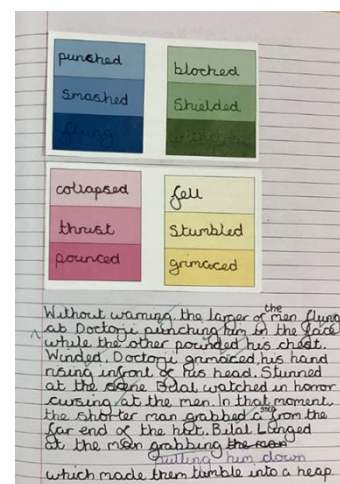 punched
blocked
smashed
Shielded
flung
collapsed
fell
thrust
stumbled
pounced
grimaced
Without warning, the larger of the men flung
at Doctorji punching him in the face
while the other pounded his chest.
Winded, Doctorji grimaced, his hand
rising infront of his head. Stunned
at the scene Bilal watched in horror
cursing at the men. In that moment,
the shorter man grabbed a step from the
far end of the hut. Bilal Lunged
at the man grabbing the man
pulling him down
which made them tumble into a heap.